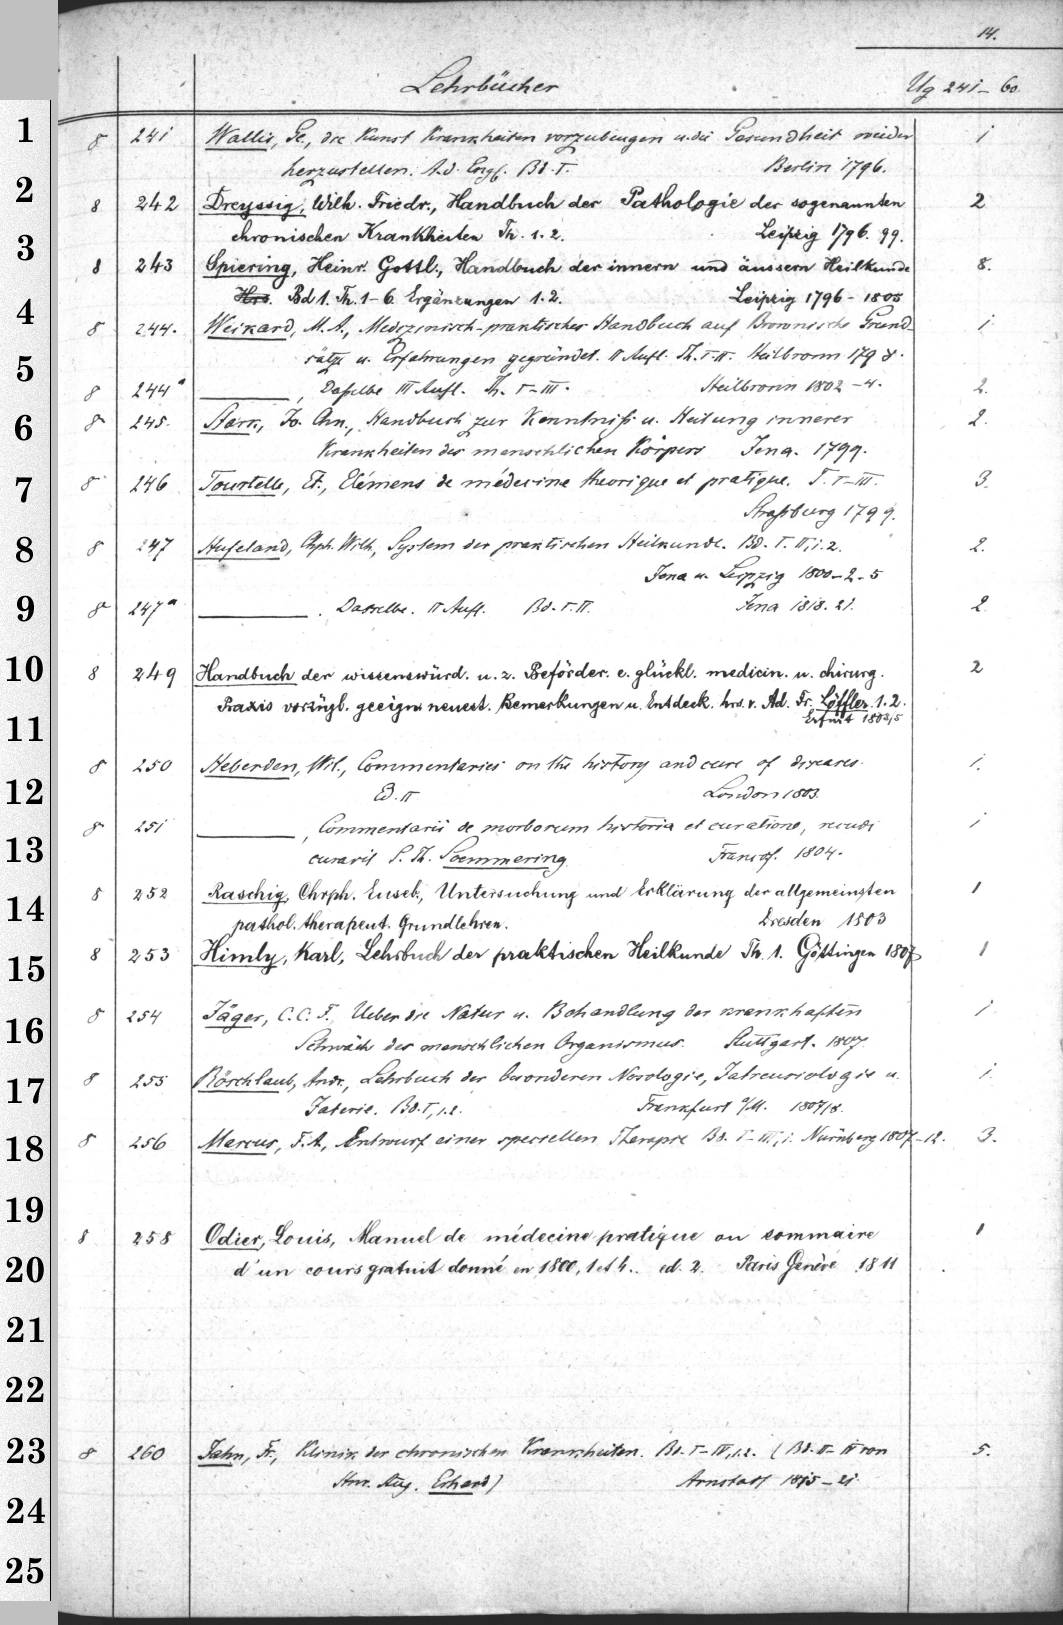 14.
Lehrbücher Ug 241-60.
1 8 241 Wallis, Ge., die Kunst Krankheiten vorzubeugen u. die Gesundheit wieder 1
herzustellen. A. d. Engl. Bd. I. Berlin 1796.
2 8 242 Dreyssig, Wilh. Friedr., Handbuch der Pathologie der sogenannten 2
chronischen Krankheiten Th. 1.2. Leipzig 1796. 99.
3 8 243 Spiering, Heinr. Gottl., Handbuch der innern und äussern Heilkunde 8.
Hrs. Bd 1. Th. 1-6 Ergänzungen 1.2. Leipzig 1796-1805
4 8 244. Weikard, M. A., Medizinisch-praktisches Handbuch auf Brownische Grund- 1
sätze u. Erfahrungen gegründet. II Aufl. Th. I-II. Heilbronn 1798.
5 8 244a ———, Dasselbe III Aufl. Th. I-III. Heilbronn 1802-4. 2.
6 8 245. Stark, Jo. Chn., Handbuch zur Kenntniß u. Heilung innerer 2.
Krankheiten des menschlichen Körpers Jena. 1799.
7 8 246 Tourtelle, Et., Elémens de médecine theorique et pratique. T. I-III. 3.
Straßburg 1799.
8 8 247 Hufeland, Chph. Wilh., System der praktischen Heilkunde. Bd. I. II,1.2. 2.
Jena u. Leipzig 1800-2-5
9 8 247a ———. Dasselbe. II Aufl. Bd. I-II. Jena 1818. 21. 2
10 8 249 Handbuch der wissenswürd. u. z. Beförder. e. glückl. medicin. u. chirurg. 2
Praxis vorzügl. geeign. neuest. Bemerkungen u. Entdeck. hrs. v. Ad. Fr. Löffler. 1.2.
Erfurt 1803,5
11
12 8 250 Heberden, Wil., Commentaries on the history and cure of diseases. 1.
Ed. II London 1803.
13 8 251 ———, Commentarii de morborum historia et curatione, recudi 1
curavit S. Th. Soemmering Francof. 1804.
14 8 252 Raschig, Chrph. Euseb., Untersuchung und Erklärung der allgemeinsten 1
pathol. therapeut. Grundlehren. Dresden 1803
15 8 253 Himly, Karl, Lehrbuch der praktischen Heilkunde Th. 1. Göttingen 1807 1
16 8 254 Jäger, C. C. F. Ueber die Natur u. Behandlung der krankhaften 1
Schwäche des menschlichen Organismus. Stuttgart. 1807.
17 8 255 Röschlaub, Andr., Lehrbuch der besonderen Nosologie, Jatreusiologie u. 1.
Jaterie. Bd. I,1.2. Frankfurt a/M. 1807/8.
18 8 256 Marcus, F. A., Entwurf einer speciellen Therapie Bd. I-III,1. Nürnberg 1807-12. 3.
19 8 258 Odier, Louis, Manuel de médecine pratique ou sommaire 1
20 d'un cours gratuit donné en 1800, 1 et 4. ed. 2. Paris Genève 1811
21
22
23 8 260 Jahn, Fr., Klinik der chronischen Krankheiten. Bd. I-IV,1.2. (Bd. II-IV von 5.
Hnr. Aug. Erhard) Arnstadt 1815-21.
24
25